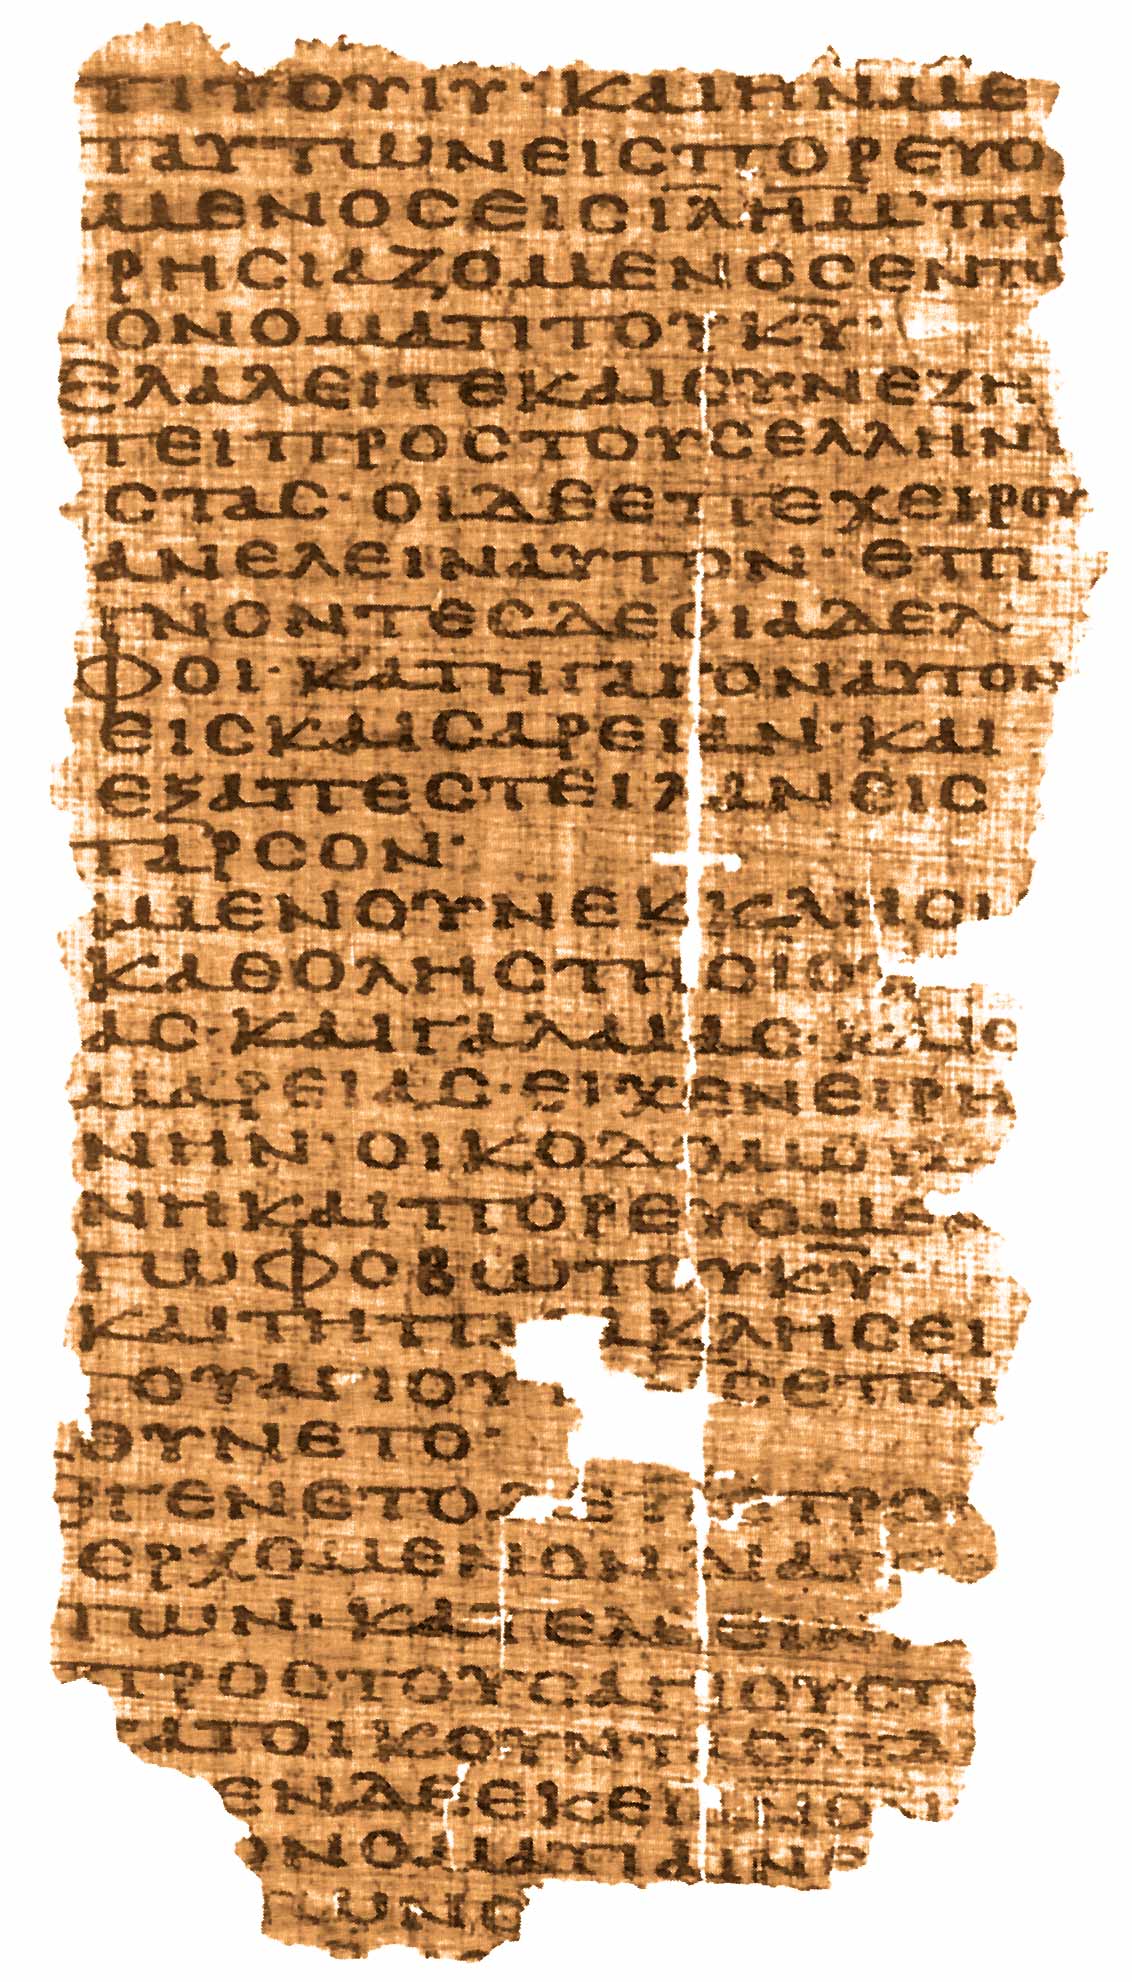 ΤΙΤΟΥΙΥ· ΚΑΙΗΝΜΕ
ΤΑΥΤΩΝΕΙΣΠΟΡΕΥΟ
ΜΕΝΟΣΕΙΣΙΛΗΜ’ΠΑΡ
ΡΗΣΙΑΖΟΜΕΝΟΣΕΝΤΩ
ΟΝΟΜΑΤΙΤΟΥΚΥ·
ΕΛΑΛΕΙΤΕΚΑΙΣΥΝΕΖΗ
ΤΕΙΠΡΟΣΤΟΥΣΕΛΛΗΝΙ
ΣΤΑΣ· ΟΙΔΕΕΠΕΧΕΙΡΟΥ
ΑΝΕΛΕΙΝΑΥΤΟΝ· ΕΠΙ
ΓΝΟΝΤΕΣΔΕΟΙΑΔΕΛ
ΦΟΙ· ΚΑΤΗΓΑΓΟΝΑΥΤΟΝ
ΕΙΣΚΑΙΣΑΡΕΙΑΝ· ΚΑΙ
ΕΞΑΠΕΣΤΕΙΛΑΝΕΙΣ
ΤΑΡΣΟΝ·
ΜΕΝΟΥΝΕΚΚΛΗΣΙ
ΚΑΘΟΛΗΣΤΗΣΙΟΥ
ΑΣ· ΚΑΙΓΑΛΑΙΑΣ· ΚΑΙΣ
ΜΑΡΕΙΑΣ· ΕΙΧΕΝΕΙΡΗ
ΝΗΝ· ΟΙΚΟΔΟΜΟΥ
ΝΗΚΑΙΠΟΡΕΥΟΜΕΝ
ΤΩΦΟΒΩΤΟΥΚΥ·
ΚΑΙΤΗΠΑ ΚΛΗΣΕΙ
ΤΟΥΑΓΙΟΥΠ ΣΕΠΛΗ
ΘΥΝΕΤΟ·
ΕΓΕΝΕΤΟΔΕΠΕΤΡΟ
ΕΡΧΟΜΕΝΟΝΔΙΑΠ
ΤΩΝ· ΚΑΤΕΛΘΕΙΝ
ΠΡΟΣΤΟΥΣΑΓΙΟΥΣΤΟ
ΚΑΤΟΙΚΟΥΝΤΑΣΛΥΔΔΑ
ΡΕΝΔΕΕΚΕΙΑΝΘΡ
ΟΝΟΜΑΤΙΑΙΝΕ
ΤΩΝΟ